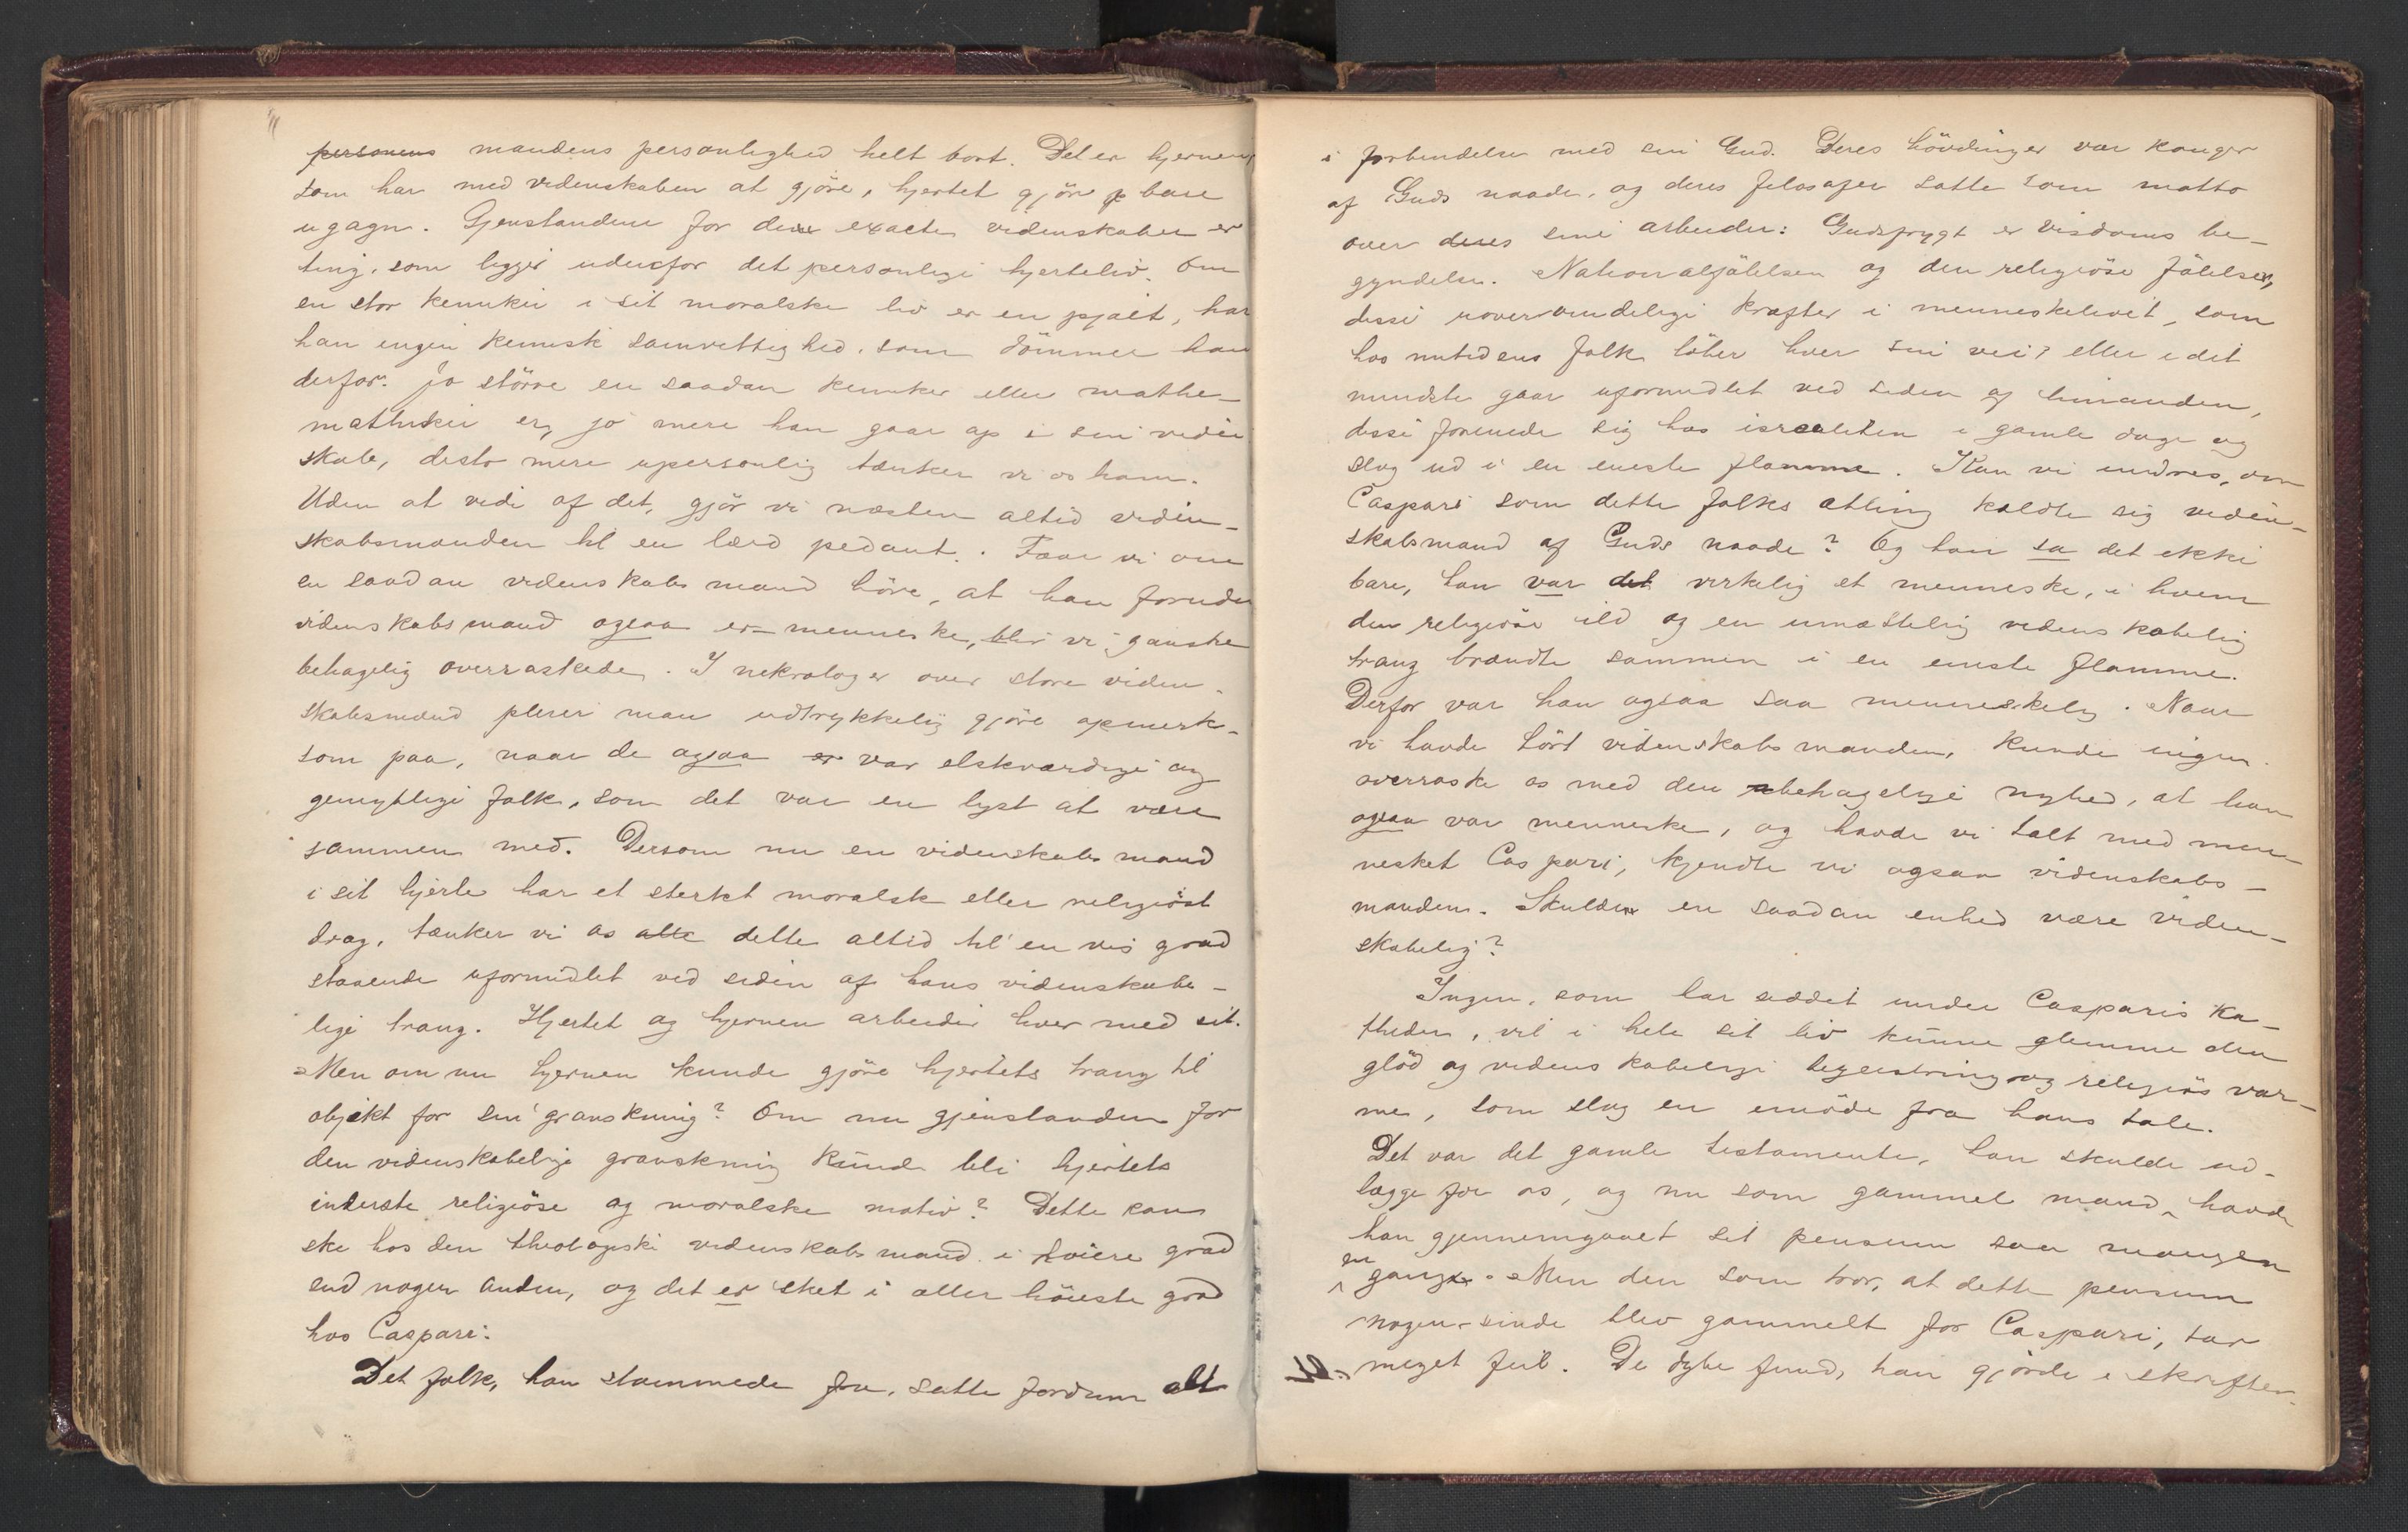 personens mandens personlighed helt bort. Det er hjernen,
som har med videnskaben at gjöre, hjertet gjör bare
ugagn. Gjenstandene for de exacte videnskaber er
ting, som ligger udenfor det personlige hjerteliv. Om
en stor kemiker i sit moralske liv er en pjalt, har
han ingen kemisk samvittighed, som dömmer ham
derfor. Jo större en saadan kemiker eller mathe-
mathiker er, jo mere han gaar op i sin viden
skab, desto mere upersonlig tænker vi os ham.
Uden at vide af det, gjör vi næsten altid viden-
skabsmanden til en lærd pedant. Faar vi om
en saadan videnskabsmand höre, at han foruden
videnskabsmand ogsaa er menneske, blir vi ganske
behagelig overraskede. I nekrologer over store viden-
skabsmænd pleier man udtrykkelig gjöre opmerk-
som paa, naar de ogsaa er var elskværdige og
gemytlige folk, som det var en lyst at være
sammen med. Dersom nu en videnskabsmand
i sit hjerte har et sterkt moralsk eller religiöst
drag, tænker vi os alle dette altid til en vis grad
staaende uformidlet ved siden af hans videnskabe-
lige trang. Hjertet og hjernen arbeider hver med sit.
Men om nu hjernen kunde gjöre hjertets trang til
objekt for sin granskning? Om nu gjenstanden for
den videnskabelige granskning kunde bli hjertets
inderste religiöse og moralske motiv? Dette kan
ske hos den theologiske videnskabsmand i höiere grad
end nogen anden, og det er sket i aller höieste grad
hos Caspari.
Det folk, han stammede fra, satte fordum alt
i forbindelse med sin Gud. Deres hövdinger var konger
af Guds naade, og deres filosofer satte som motto
over deres sine arbeider: Gudsfrygt er visdoms be-
gyndelse. Nationalfölelsen og den religiöse fölelse,
disse uovervindelige kræfter i menneskelivet, som
hos nutidens folk löber hver sin vei, eller i det
mindste gaar uformidlet ved siden af hinanden,
disse forenede sig hos israeliten i gamle dage og
slog ud i en eneste flamme. Kan vi undres, om
Caspari som dette folks ætling kaldte sig viden-
skabsmand af Guds naade? Og han sa det ikke
bare, han var det virkelig et menneske, i hvem
den religiöse ild og en umættelig videnskabelig
trang brændte sammen i en eneste flamme.
Derfor var han ogsaa saa menneskelig. Naar
vi havde hört videnskabsmanden, kunde ingen
overraske os med den behagelige nyhed, at han
ogsaa var menneske, og havde vi talt med men-
nesket Caspari, kjendte vi ogsaa videnskabs-
manden. Skulde en saadan enhed være viden-
skabelig?
Ingen, som har siddet under Casparis ka-
theder, vil i hele sit liv kunne glemme den
glöd og videnskabelige begeistring og religiös var-
me, som slog en imöde fra hans tale.
Det var det gamle testamente, han skulde ud-
lægge for os, og nu som gammel mand, havde
han gjennemgaaet sit pensum saa mangen
en
gang. Men den som tror, at dette pensum
nogensinde blev gammelt for Caspari, tar
meget feil. De dybe fund, han gjörde i skriften